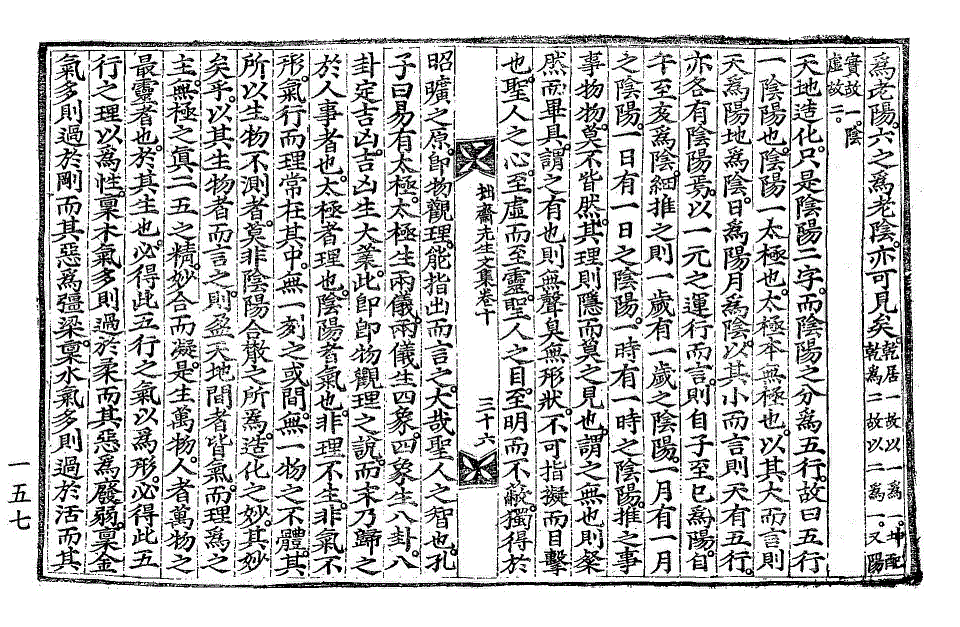 爲老陽。六之爲老陰亦可見矣。乾居一故以一爲一。坤配
乾爲二故以二爲一。又陽
實故一。陰
虛故二。
天地造化。只是陰陽二字。而陰陽之分爲五行。故曰五行
一陰陽也。陰陽一太極也。太極本無極也。以其大而言則
天爲陽地爲陰。日爲陽月爲陰。以其小而言則天有五行。
亦各有陰陽焉。以一元之運行而言。則自子至巳爲陽。自
午至亥爲陰。細推之則一歲有一歲之陰陽。一月有一月
之陰陽。一日有一日之陰陽。一時有一時之陰陽。推之事
事物物。莫不皆然。其理則隱而莫之見也。謂之無也則粲
然而畢具。謂之有也則無聲臭無形狀。不可指擬而目擊
也。聖人之心。至虛而至靈。聖人之目。至明而不蔽。獨得於
拙齋先生文集卷十 三十六
昭曠之原。卽物觀理。能指出而言之。大哉聖人之智也。孔
子曰易有太極。太極生兩儀。兩儀生四象。四象生八卦。八
卦定吉凶。吉凶生大業。此卽卽物觀理之說。而末乃歸之
於人事者也。太極者理也。陰陽者氣也。非理不生。非氣不
形。氣行而理常在其中。無一刻之或間。無一物之不體。其
所以生物不測者。莫非陰陽合散之所爲。造化之妙。其妙
矣乎。以其生物者而言之。則盈天地間者皆氣。而理爲之
主。無極之眞。二五之精。妙合而凝。是生萬物。人者萬物之
最靈者也。於其生也。必得此五行之氣以爲形。必得此五
行之理以爲性。稟木氣多則過於柔而其惡爲孱弱。稟金
氣多則過於剛而其惡爲彊梁。稟水氣多則過於活而其
一五七